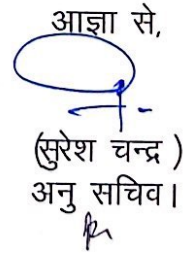 आज्ञा से,
(सुरेश चन्द्र )
अनु सचिव।